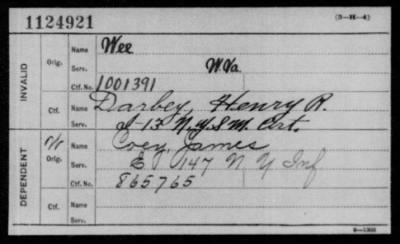 1124921 (3-H-4)
INVALID Orig. Name Wee
Serv. W.Va
Ctf. No. 1001391
Ctf. Name Darbey, Henry R.
Serv. I-13 N.Y.S.M. Art.
DEPENDENT Orig. Name Coey, James
Serv. E 147 N Y Inf
Ctf. No. 865765
Ctf. Name
Serv.